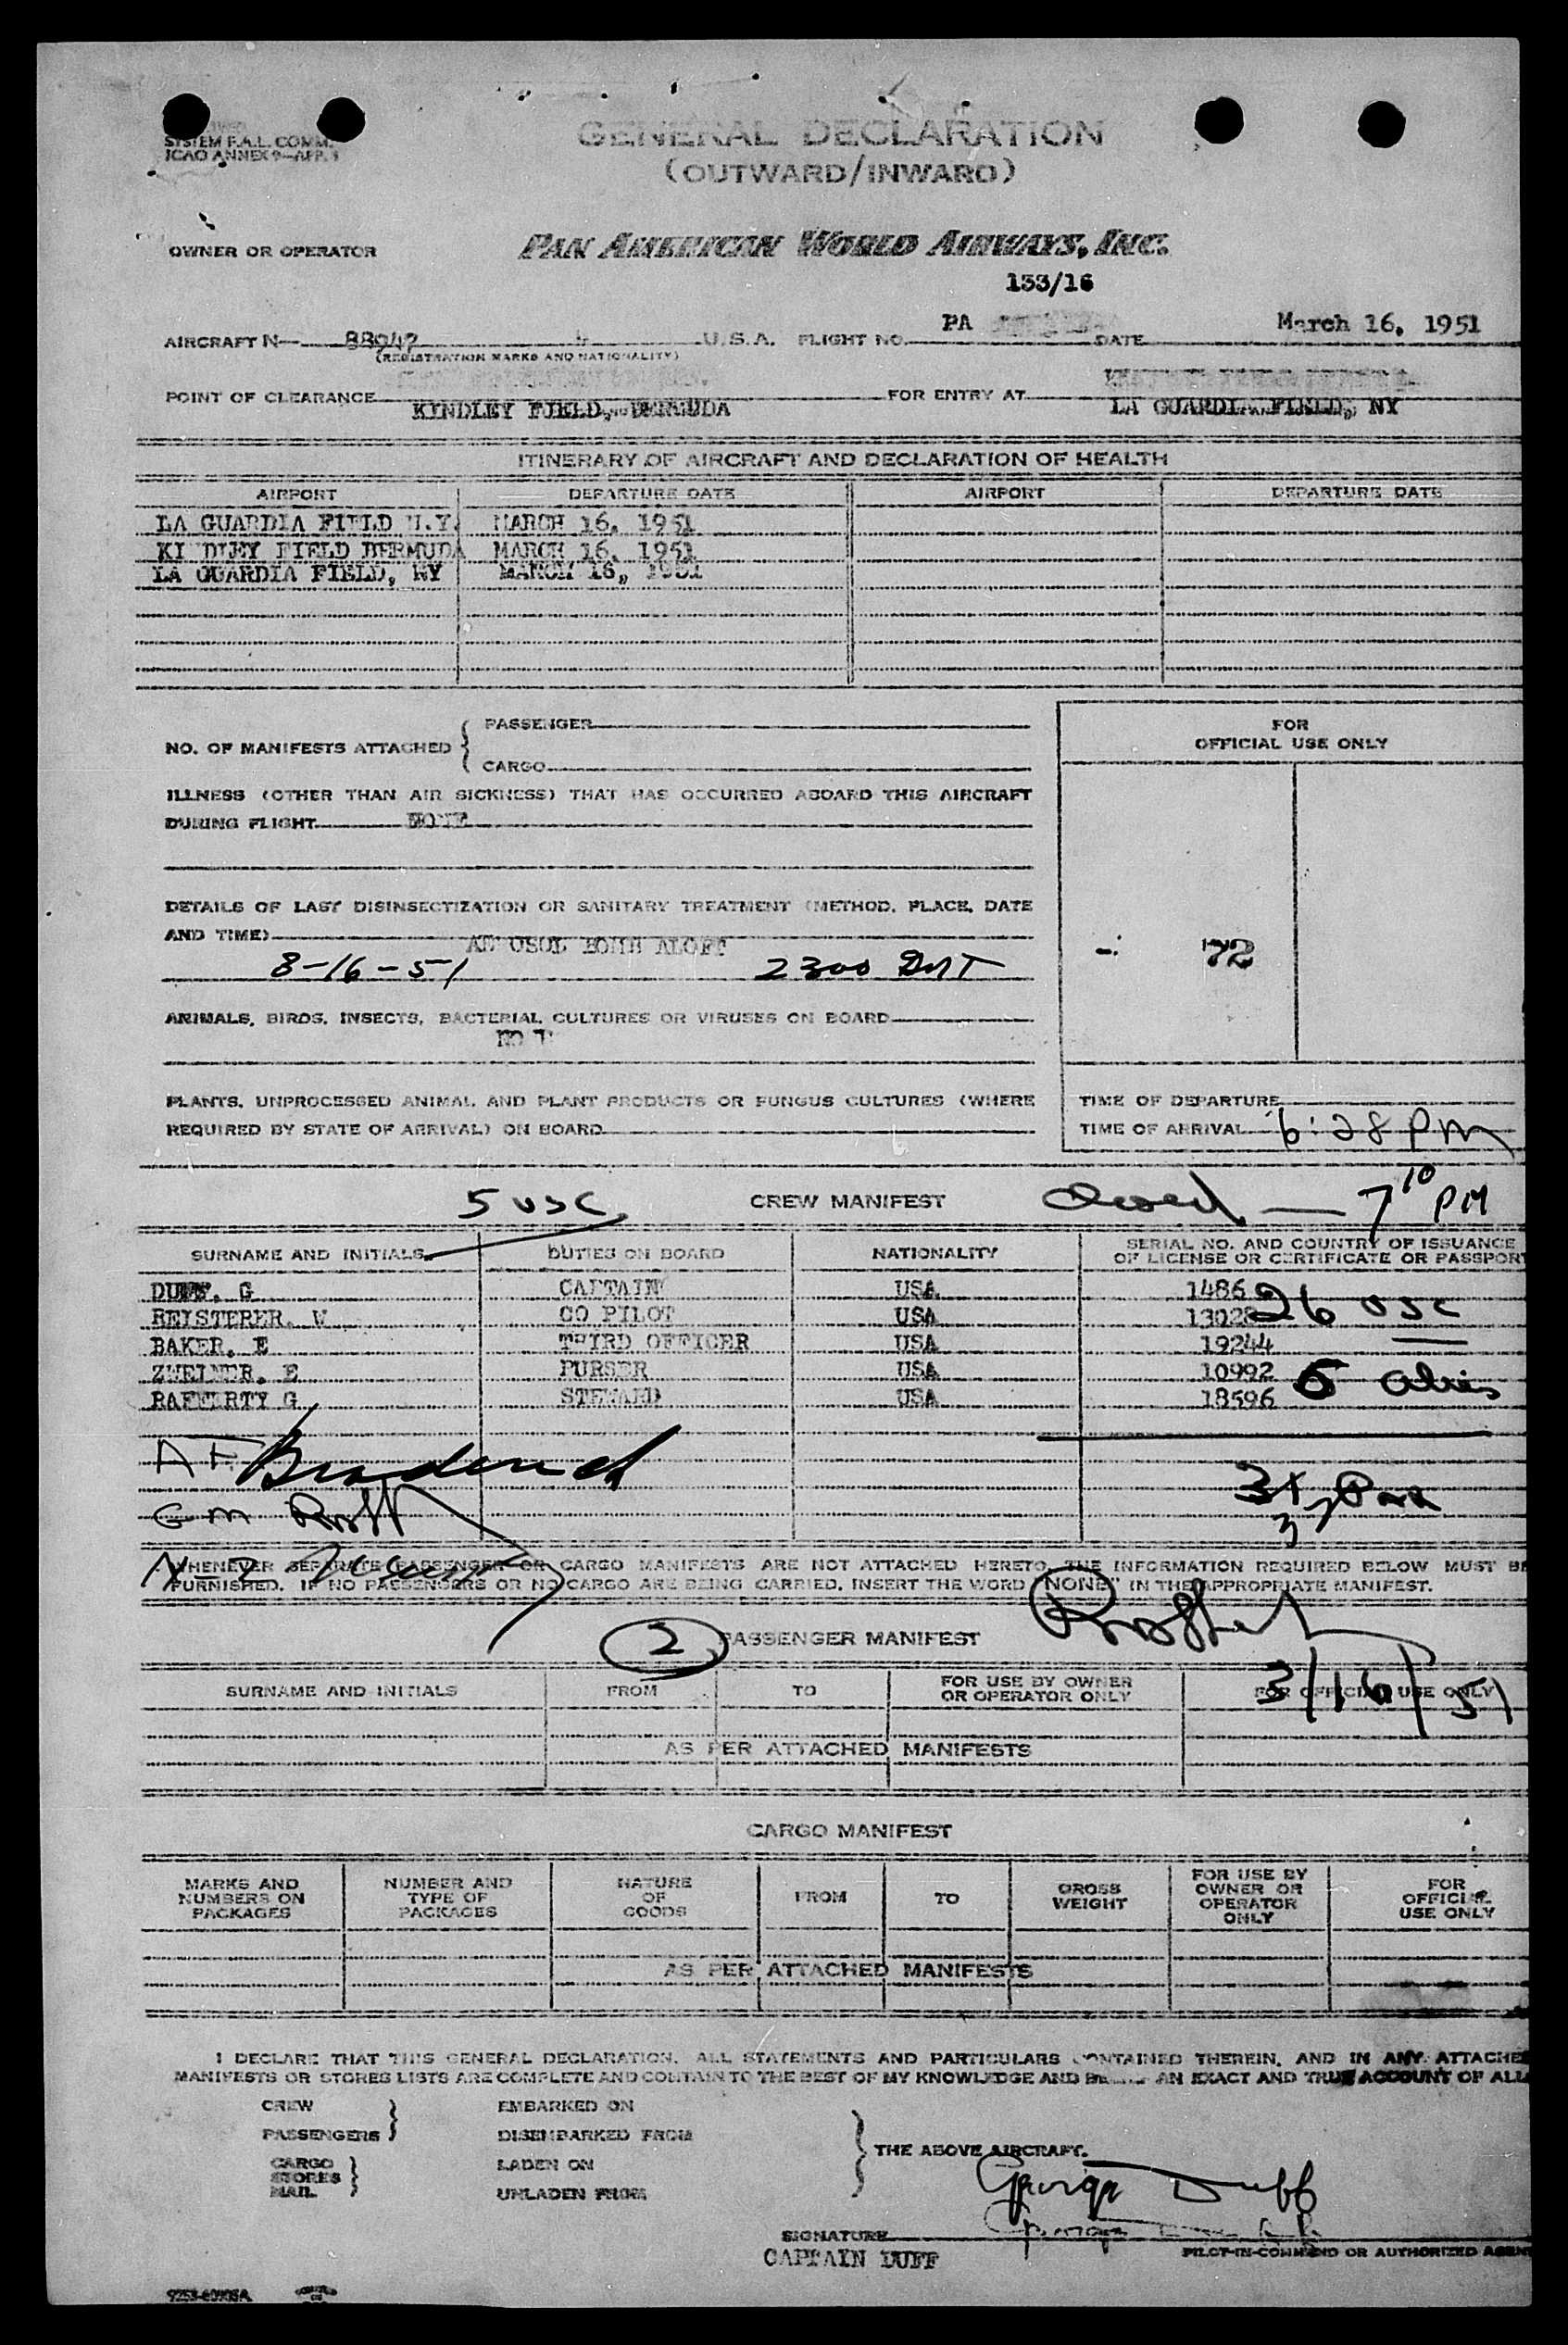 SYSTEM F.A.L. COMM.
ICAO ANNEX 9—APP. 1
GENERAL DECLARATION
(OUTWARD/INWARD)
OWNER OR OPERATOR PAN AMERICAN WORLD AIRWAYS, INC.
153/16
AIRCRAFT N— 88942 U.S.A. FLIGHT NO. PA DATE March 16, 1951
(REGISTRATION MARKS AND NATIONALITY)
POINT OF CLEARANCE KINDLEY FIELD, BERMUDA FOR ENTRY AT LA GUARDIA FIELD, NY
ITINERARY OF AIRCRAFT AND DECLARATION OF HEALTH
AIRPORT DEPARTURE DATE AIRPORT DEPARTURE DATE
LA GUARDIA FIELD N.Y. MARCH 16, 1951
KI DLEY FIELD BERMUDA MARCH 16, 1951
LA GUARDIA FIELD, NY MARCH 16, 1951
NO. OF MANIFESTS ATTACHED { PASSENGER
CARGO
FOR
OFFICIAL USE ONLY
ILLNESS (OTHER THAN AIR SICKNESS) THAT HAS OCCURRED ABOARD THIS AIRCRAFT
DURING FLIGHT NONE
DETAILS OF LAST DISINSECTIZATION OR SANITARY TREATMENT (METHOD, PLACE, DATE
AND TIME) BOMB ALOFT
8-16-51 2300 GMT
72
ANIMALS, BIRDS, INSECTS, BACTERIAL CULTURES OR VIRUSES ON BOARD
PLANTS, UNPROCESSED ANIMAL AND PLANT PRODUCTS OR FUNGUS CULTURES (WHERE
REQUIRED BY STATE OF ARRIVAL) ON BOARD
TIME OF DEPARTURE
TIME OF ARRIVAL 6:28 PM
5 USC CREW MANIFEST Closed — 7 10 PM
SURNAME AND INITIALS DUTIES ON BOARD NATIONALITY SERIAL NO. AND COUNTRY OF ISSUANCE
OF LICENSE OR CERTIFICATE OR PASSPORT
DUFF, G CAPTAIN USA 1486
REISTERER, W CO PILOT USA 13028 26 USC
BAKER, E THIRD OFFICER USA 19244
E PURSER USA 10992 5 Aliens
RAFFERTY G STEWARD USA 18596
31 Pax
WHENEVER SEPARATE PASSENGER OR CARGO MANIFESTS ARE NOT ATTACHED HERETO, THE INFORMATION REQUIRED BELOW MUST BE
FURNISHED. IF NO PASSENGERS OR NO CARGO ARE BEING CARRIED, INSERT THE WORD "NONE" IN THE APPROPRIATE MANIFEST.
2 PASSENGER MANIFEST
SURNAME AND INITIALS FROM TO FOR USE BY OWNER
OR OPERATOR ONLY FOR OFFICIAL USE ONLY
3/16/51
AS PER ATTACHED MANIFESTS
CARGO MANIFEST
MARKS AND
NUMBERS ON
PACKAGES NUMBER AND
TYPE OF
PACKAGES NATURE
OF
GOODS FROM TO GROSS
WEIGHT FOR USE BY
OWNER OR
OPERATOR
ONLY FOR
OFFICIAL
USE ONLY
AS PER ATTACHED MANIFESTS
I DECLARE THAT THIS GENERAL DECLARATION, ALL STATEMENTS AND PARTICULARS CONTAINED THEREIN, AND IN ANY ATTACHED
MANIFESTS OR STORES LISTS ARE COMPLETE AND CONTAIN TO THE BEST OF MY KNOWLEDGE AND BELIEF AN EXACT AND TRUE ACCOUNT OF ALL
CREW EMBARKED ON
PASSENGERS DISEMBARKED FROM
THE ABOVE AIRCRAFT.
CARGO LADEN ON
STORES
MAIL UNLADEN FROM
George Duff
SIGNATURE
CAPTAIN DUFF PILOT-IN-COMMAND OR AUTHORIZED AGENT